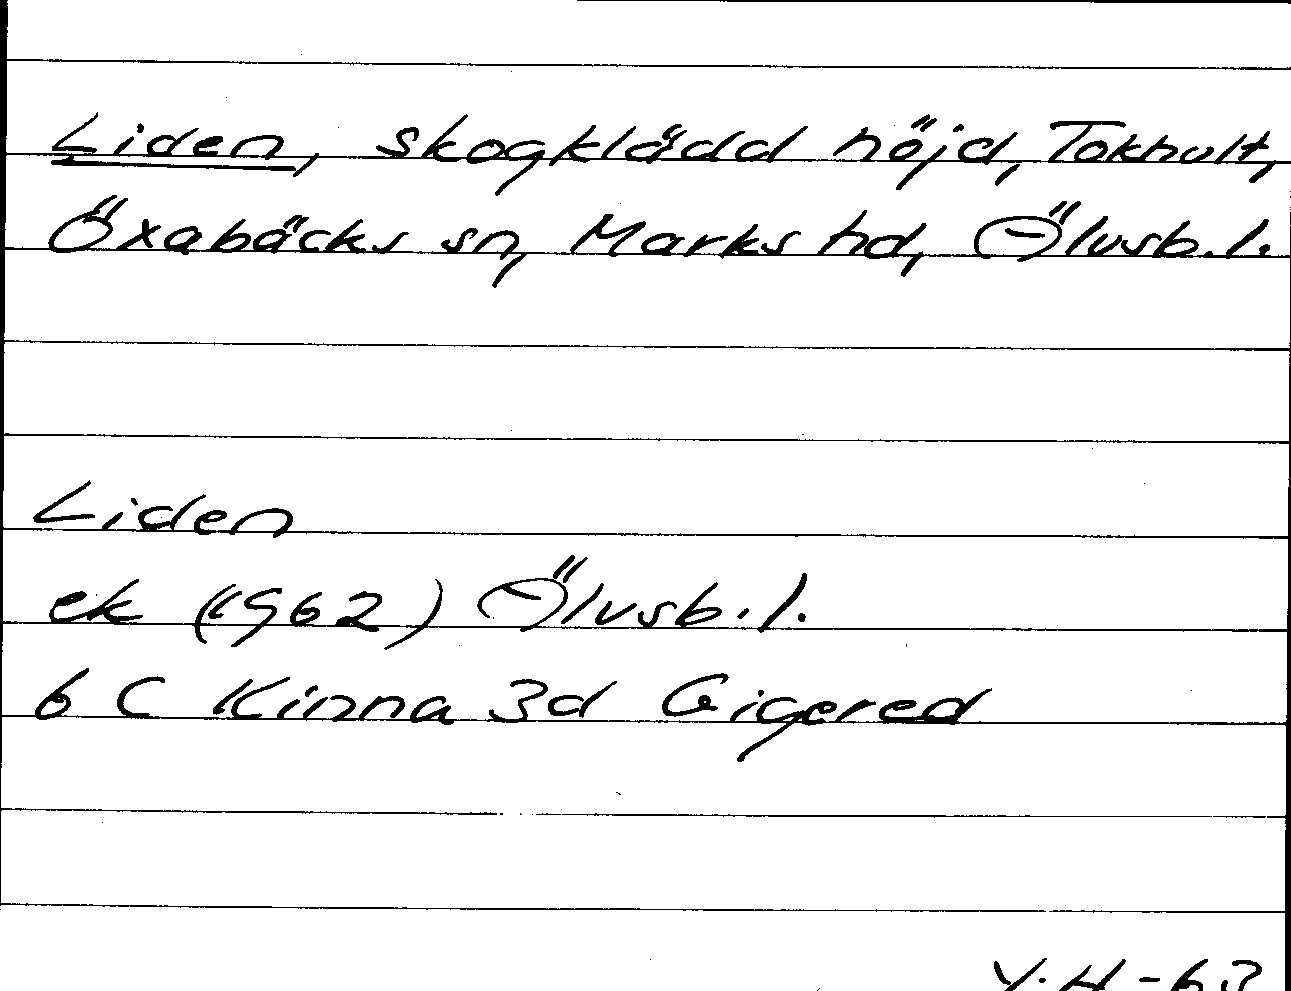 Liden, skogklädd höjd, Tokhult,
Öxabäcks sn, Marks hd, Älvsb.l.
Liden
ek (1962) Älvsb.l.
6 C Kinna 3d Gigered